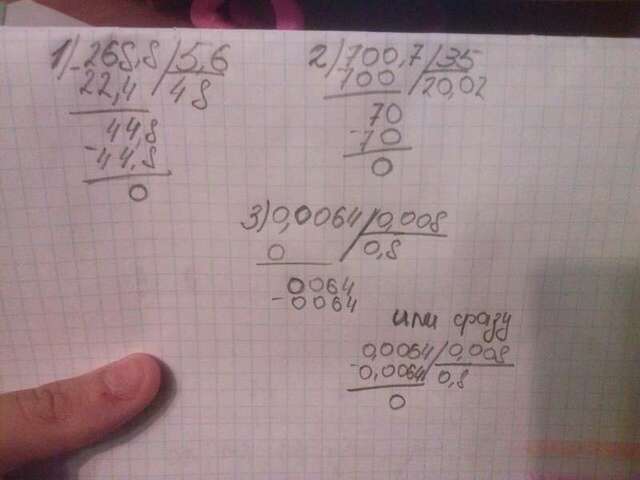 1) 268,8 / 5,6
22,4 / 48
44,8
- 44,8
0
2) 700,7 / 35
700 / 20,02
70
- 70
0
3) 0,0064 / 0,008
0 / 0,8
0064
- 0064
или сразу
- 0,0064 / 0,008
0,0064 / 0,8
0